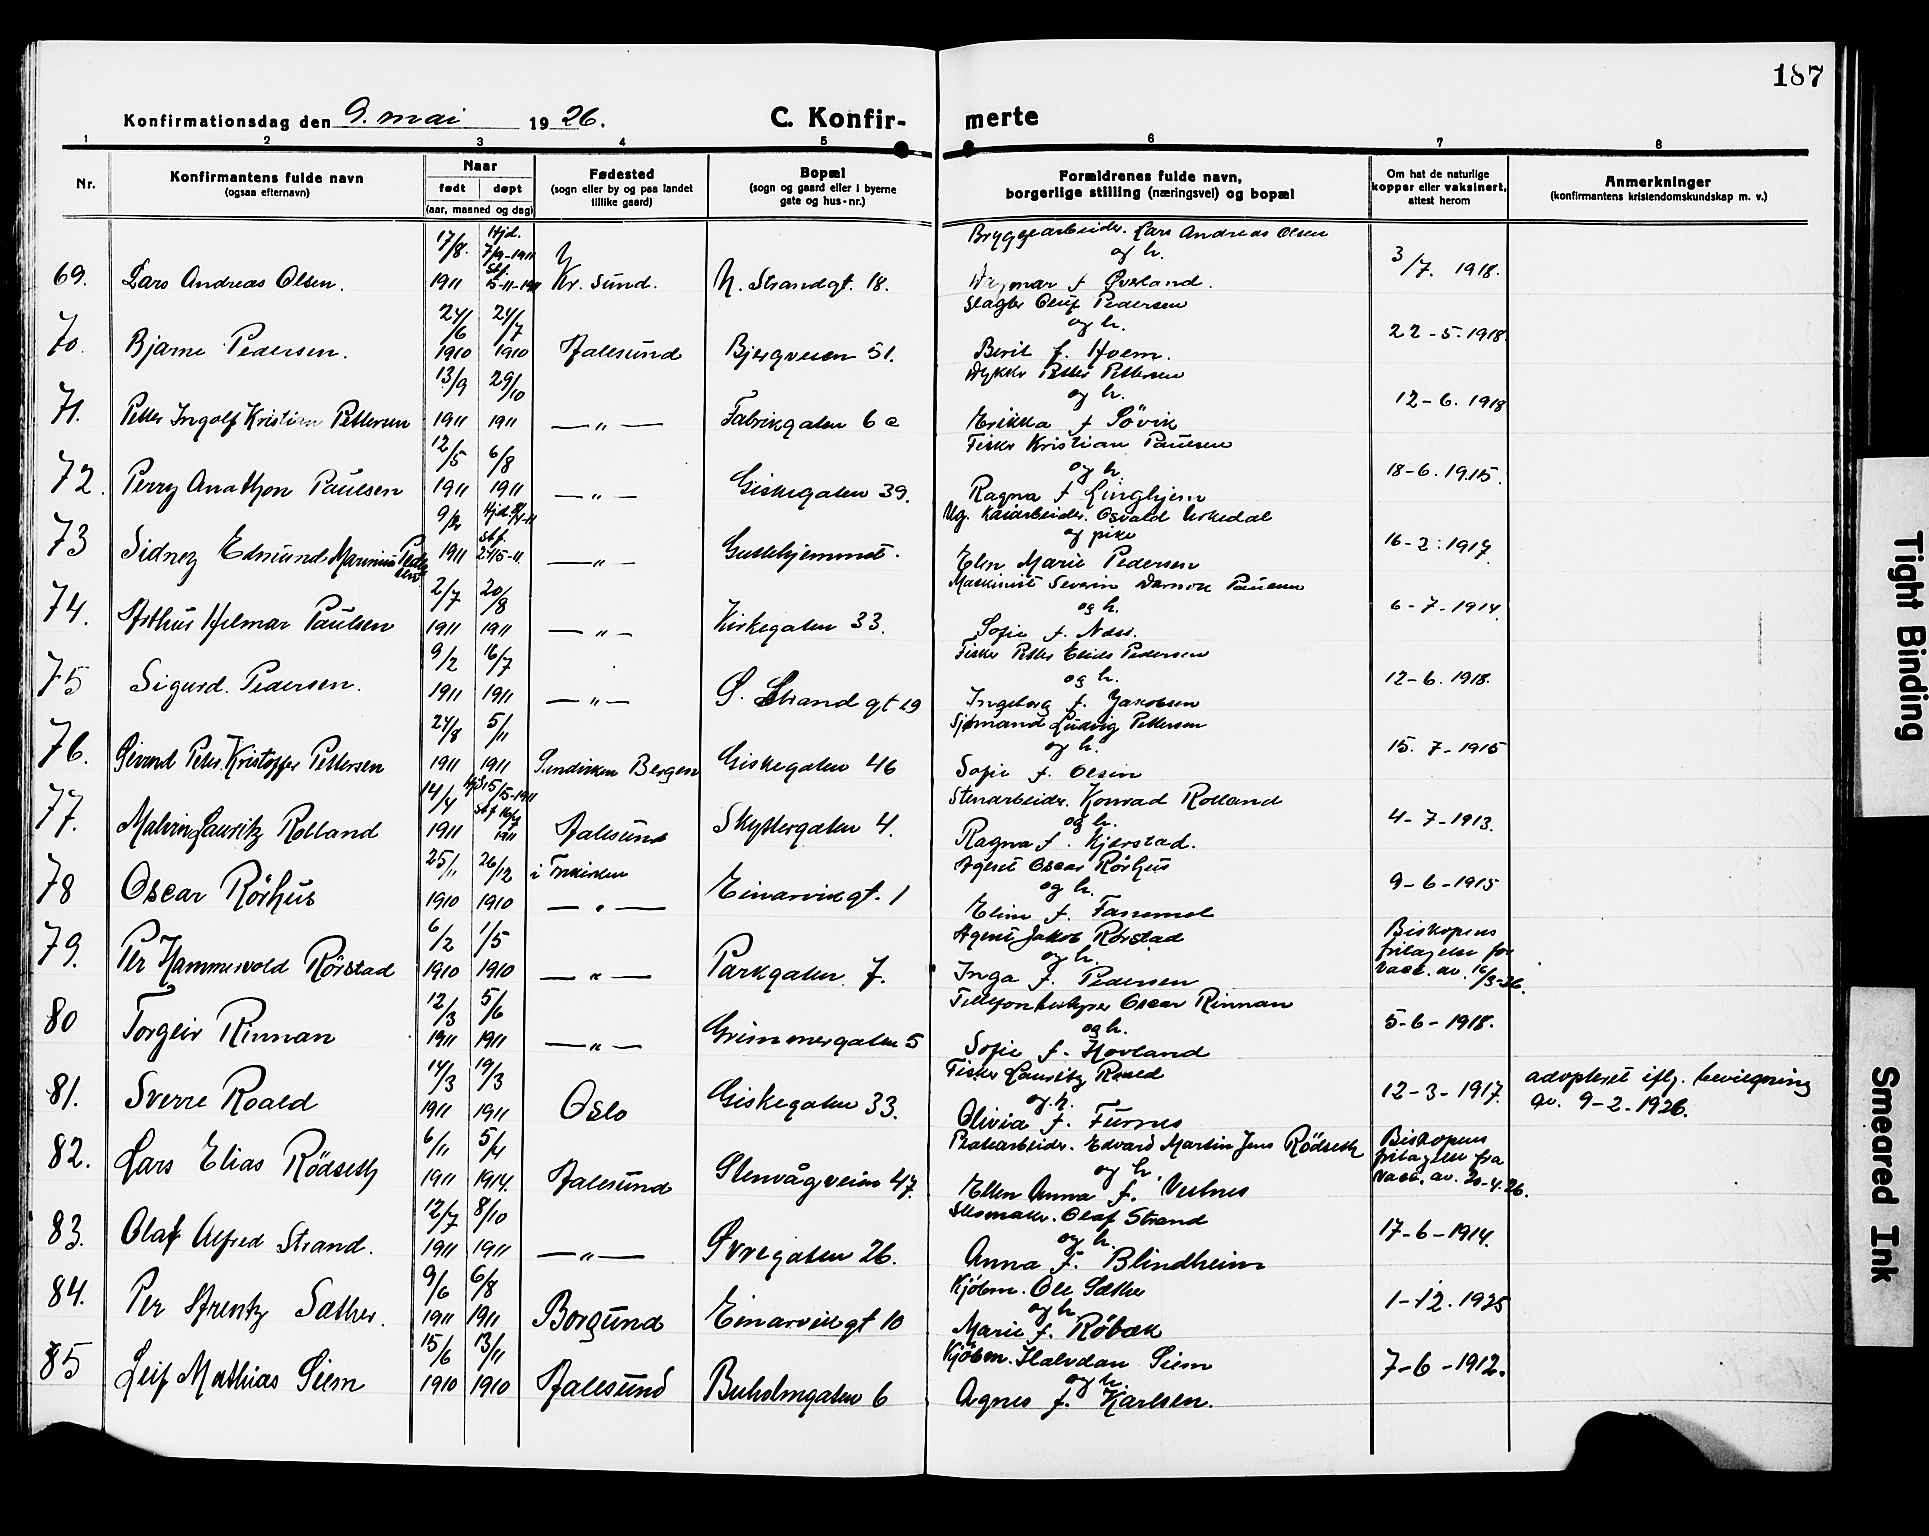 187
Konfirmationsdag den 9. mai 1926.
C. Konfirmerte
1 2 3 4 5 6 7 8
Nr.
Konfirmantens fulde navn
(ogsaa efternavn)
Naar
født døpt
(aar, maaned og dag)
Fødested
(sogn eller by og paa landet
tillike gaard)
Bopæl
(sogn og gaard eller i byerne
gate og hus-nr.)
Forældrenes fulde navn,
borgerlige stilling (næringsvei) og bopæl
Om hat de naturlige
kopper eller vaksinert,
attest herom
Anmerkninger
(konfirmantens kristendomskundskap m. v.)
69. Lars Andreas Olsen. 17/8. 1911 Hjd. 7/9-1911 Stf. 5-11-1911 Kr. Sund. N. Strandgt. 18. Bryggearbeider. Lars Andreas Olsen og h. Dagmar f Øverland. 3/7. 1918.
70. Bjarne Pedersen. 24/6 1910 24/7 1910 Aalesund Bjergveien 51. Slagter Oluf Pedersen og h. Berit f. Hoem. 22-5-1918.
71. Petter Ingolf Kristian Pettersen 13/9 1911 29/10 1911 — „ — Fabrikgaten 6 c Dykker Petter Pettersen og h. Erikka f Søvik 12-6. 1918
72. Perry Anathon Paulsen 12/5 1911 6/8 1911 — „ — Giskegaten 39. Fisker Kristian Paulsen og h. Ragna f Linghjem 18-6. 1915.
73 Sidney Edmund Marinius Pedersen 1911 Hjd. Stf. — „ — Guttehjemmet. Ug. Kaiarbeider. Osvald Urkedal og pike Elen Marie Pedersen 16-2-1917.
74. Arthur Hilmar Paulsen 2/7 1911 20/8 1911 — „ — Kirkegaten 33. Maskinist Severin Paulsen og h. Sofie f. Næss. 6-7-1914.
75 Sigurd. Pedersen. 9/2 1911 16/7 1911 — „ — S. Strandgt 19 Fisker Petter Elias Pedersen og h. Ingeborg f. Jakobsen 12-6. 1918.
76. Sivert Peter Kristoffer Pettersen 24/8 1911 5/11 1911 Bergen Giskegaten 46 Sjømand Ludvig Pettersen og h. Sofie f. Olsen 15. 7-1915
77. Malvin Lauritz Rolland 14/4 1911 Hjd. 15/5-1911 Stf 1911 Aalesund Skyttergaten 4. Stenarbeider. Konrad Rolland og h. Ragna f. Kjerstad. 4-7-1913.
78 Oscar Rørhus 25/11 1910 26/12 1910 i Frikirken — „ — Einarvikgt. 1 Agent Oscar Rørhus og h. Elim f. 9-6-1915
79. Per Hammervold Rørstad 6/2 1910 1/5 1910 — „ — Parkgaten 7. Agent Jakob Rørstad og h. Inga f. Pedersen Biskopens fritagelse for vacc. av. 16/3-26.
80 Torgeir Rinnan 12/3 1911 5/6 1911 — „ — Grimmergaten 5 Telefonbestyrer Oscar Rinnan og h. Sofie f. Hovland 5-6-1918.
81. Sverre Roald 14/3 1911 19/3 1911 Oslo Giskegaten 33. Fisker Lauritz Roald og h. Olivia f. Furnes 12-3-1917. adopteret iflg. bevilgning av. 9-2-1926.
82. Lars Elias Rødseth 6/11 1911 5/4 1914. Aalesund Stenvågveien 47. Platearbeider. Edvard Martin Jens Rødseth og h Ellen Anna f. Vestnes Biskopens fritagelse fra vacc. av. 20-4-26.
83. Olaf Alfred Strand. 12/7 1911 8/10 1911 — „ — Øvregaten 26. Skomaker. Olaf Strand og h. Anna f. Blindheim 17-6-1914.
84. Per Strentz Sæther. 9/6 1911 6/8 1911 Borgund Einarvikgt 10 Kjøbm. Ole Sæther og h Marie f. Røbæk 1-12. 1925
85 Leif Mathias Siem 15/6 1910 13/11 1910 Aalesund Buholmgaten 6 Kjøbm. Halvdan Siem og h. Agnes f. Karlsen. 7-6-1912.
Tight Binding
Smeared Ink